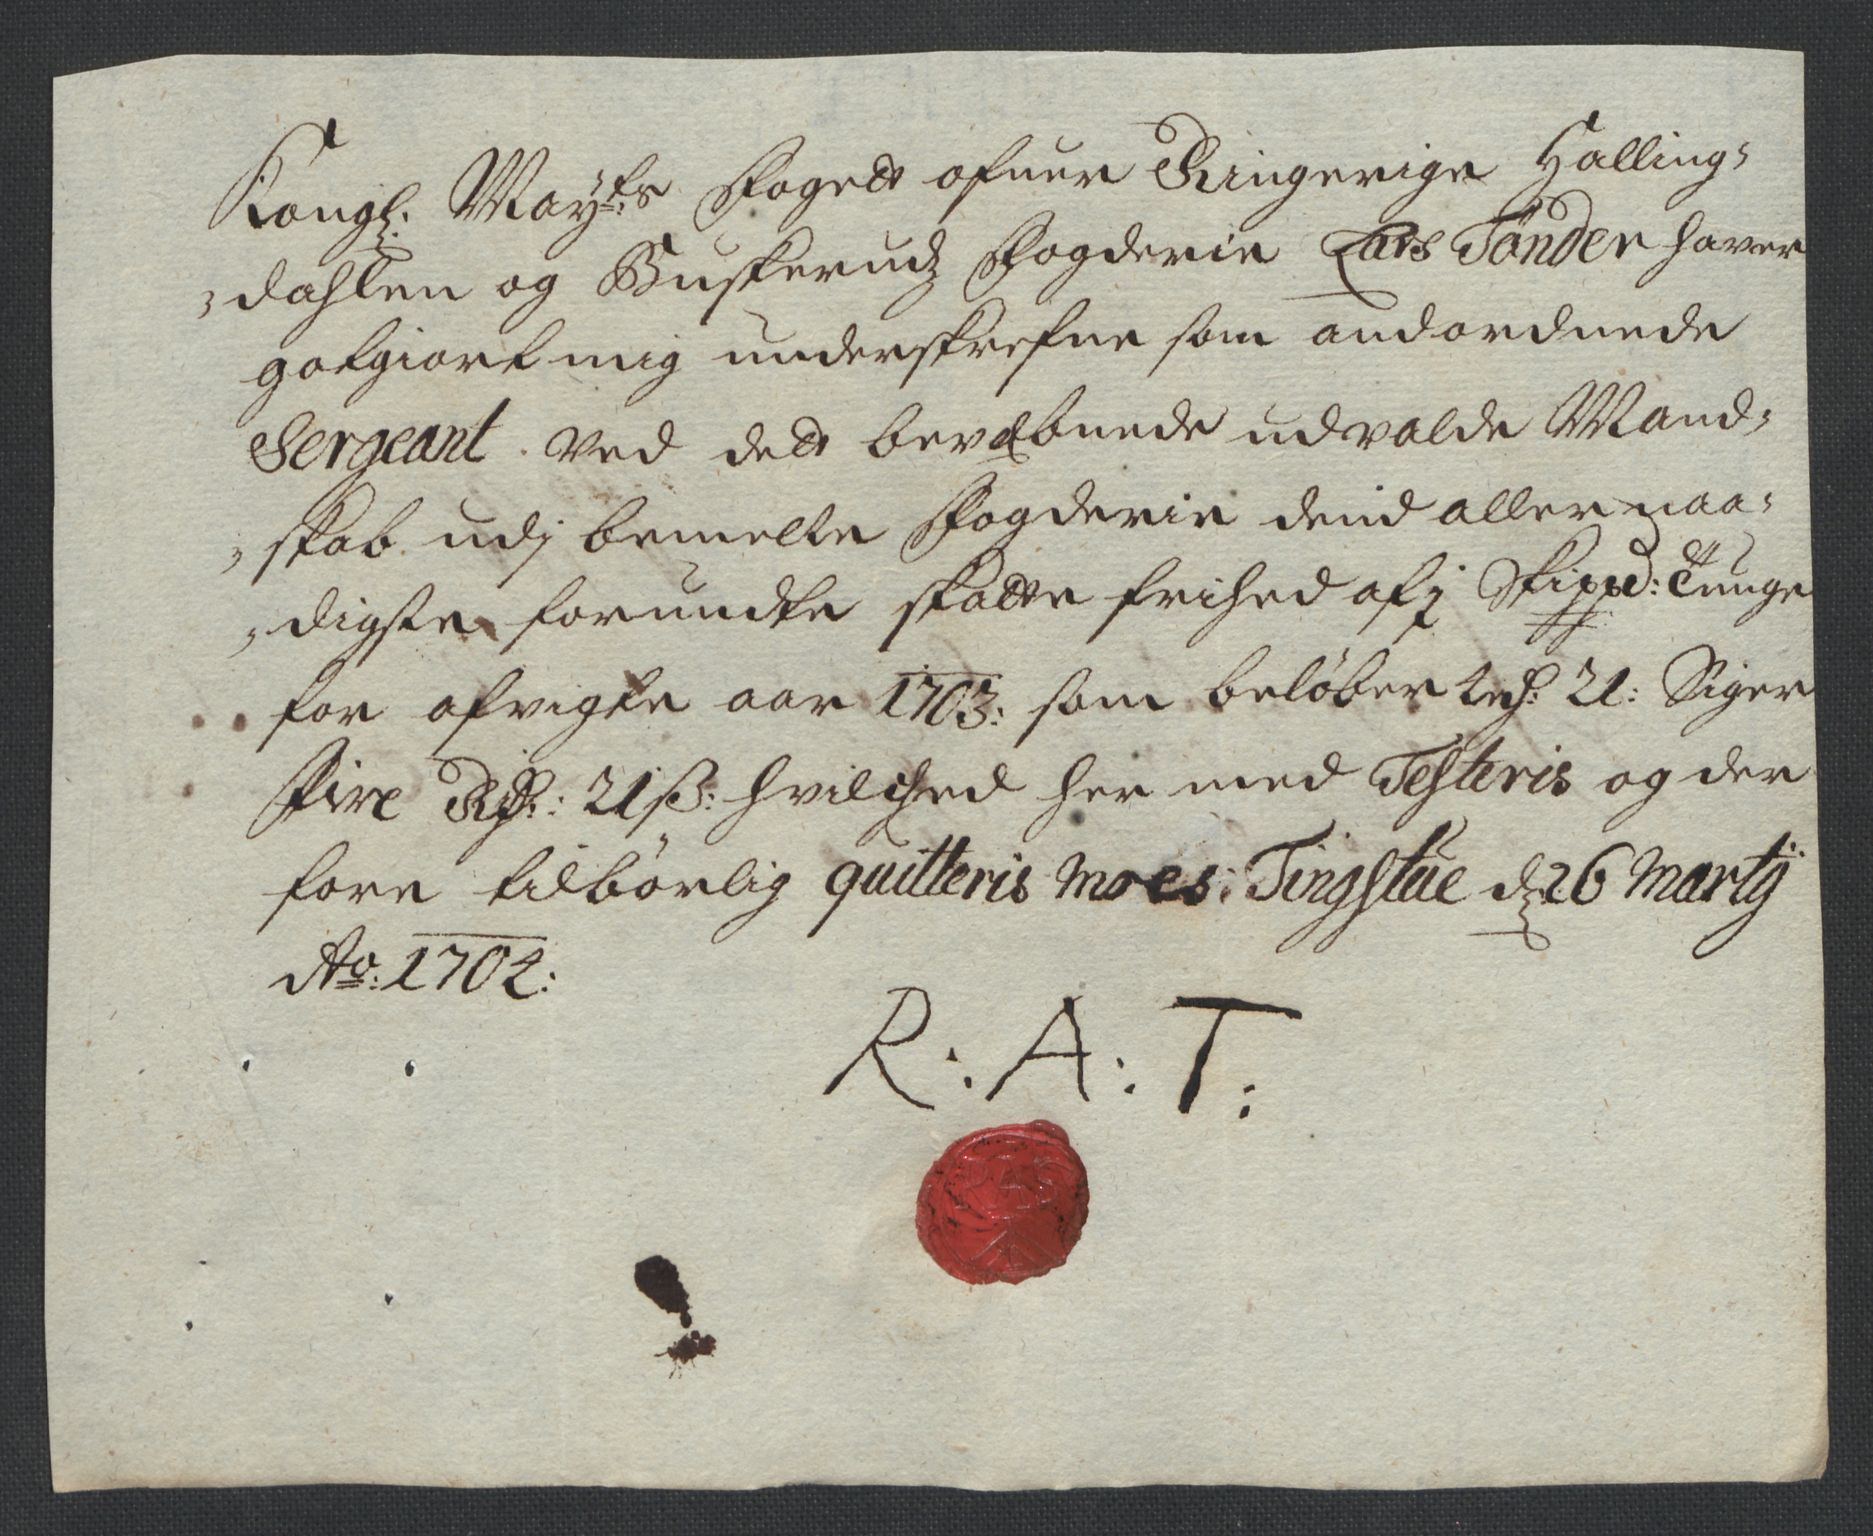 Kongl: Mayts Fogett ofuer Ringerige Halling-
dahlen og Buskerudz Fogderie Lars Tønder haver
gotgiort mig underskrefne som andordnede
Sergeant ved dett bevæbnede udvalde Mand-
skab udj bemelte Fogderie dend allernaa-
digste forundte skatte frihed af j Skippd: Tunge
for afvigte aar 1703: som beløber 4 rd: 21: Siger
Fire Rd: 21 ß: hvilched her med Testeris og der
fore tilbørlig quitteris Moes Tingstue d: 26 Martij
Ao: 1704:
R: A: T: